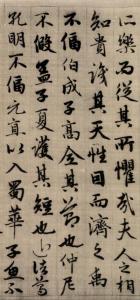 心樂而從其所懼哉夫人之相
知貴識其天性因而濟之禹
不偪伯成子高全其節也仲尼
不假盖子夏護其短也近諸葛
孔明不偪元直以入蜀華子魚不